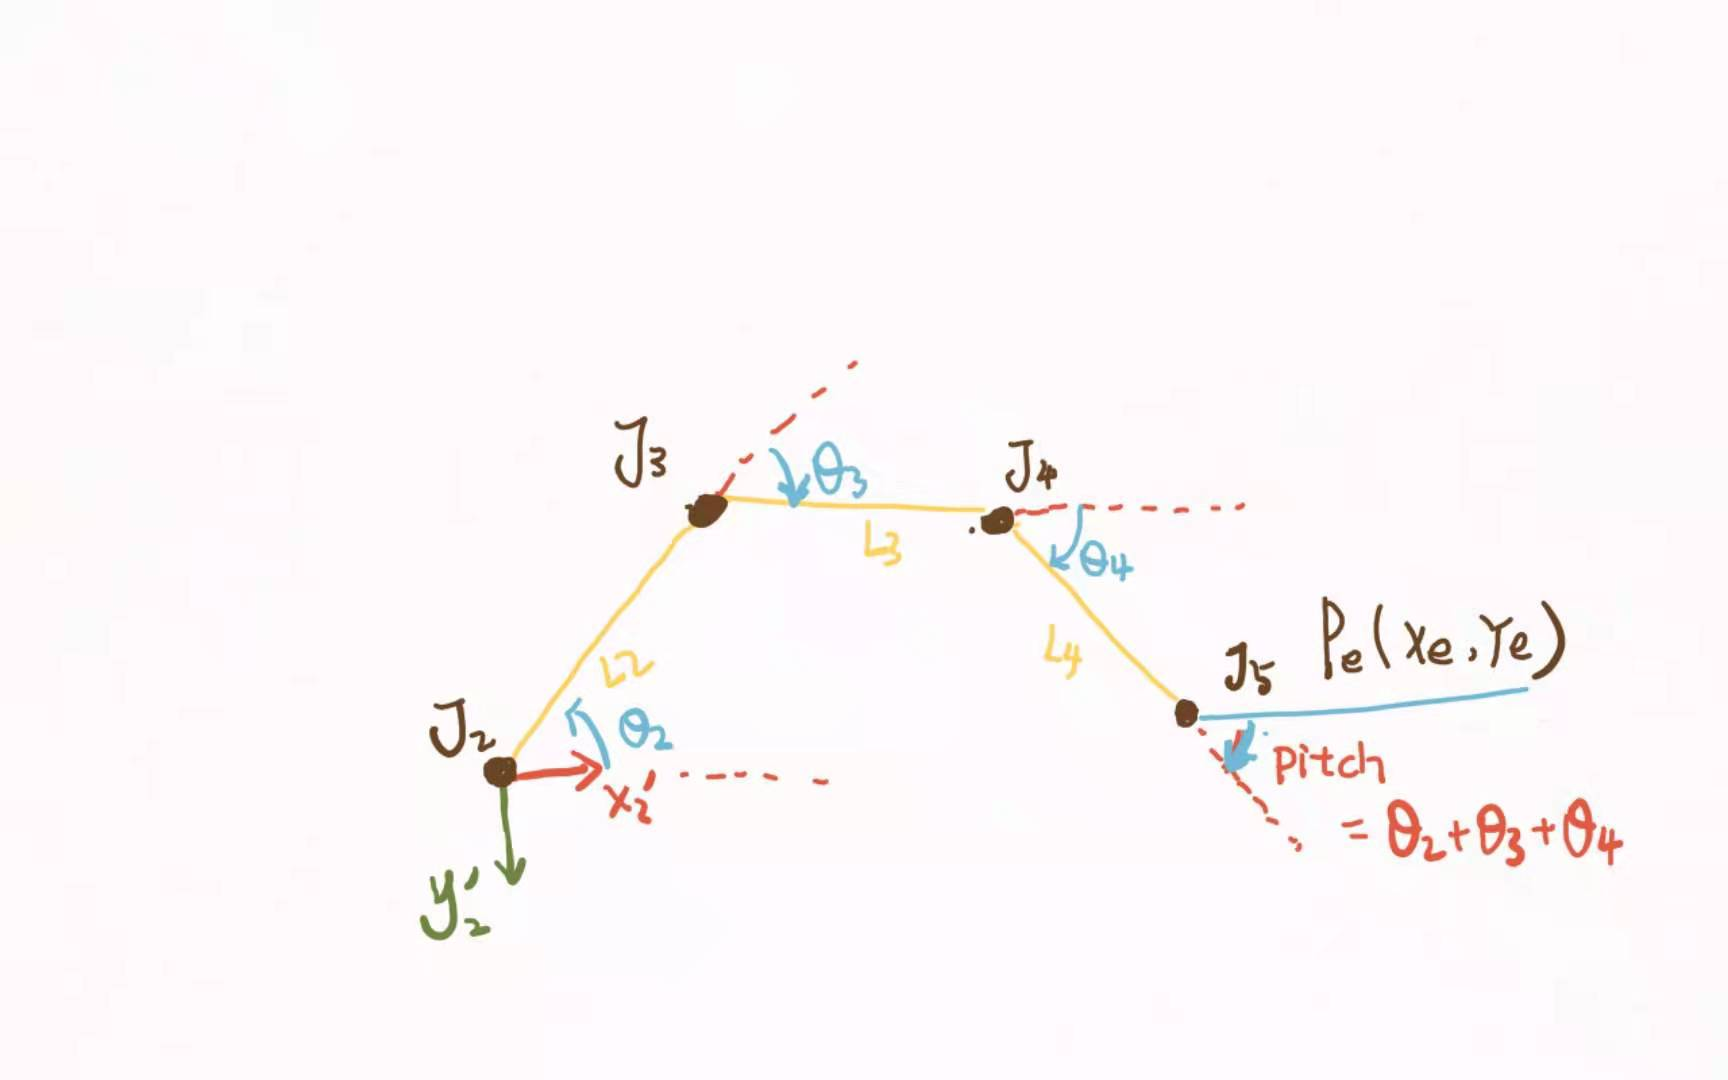 J3
θ3
J4
L3
θ4
L2
L4
J5 Pe(xe,Ye)
J2
θ2
x2'
pitch
= θ2+θ3+θ4
y2'